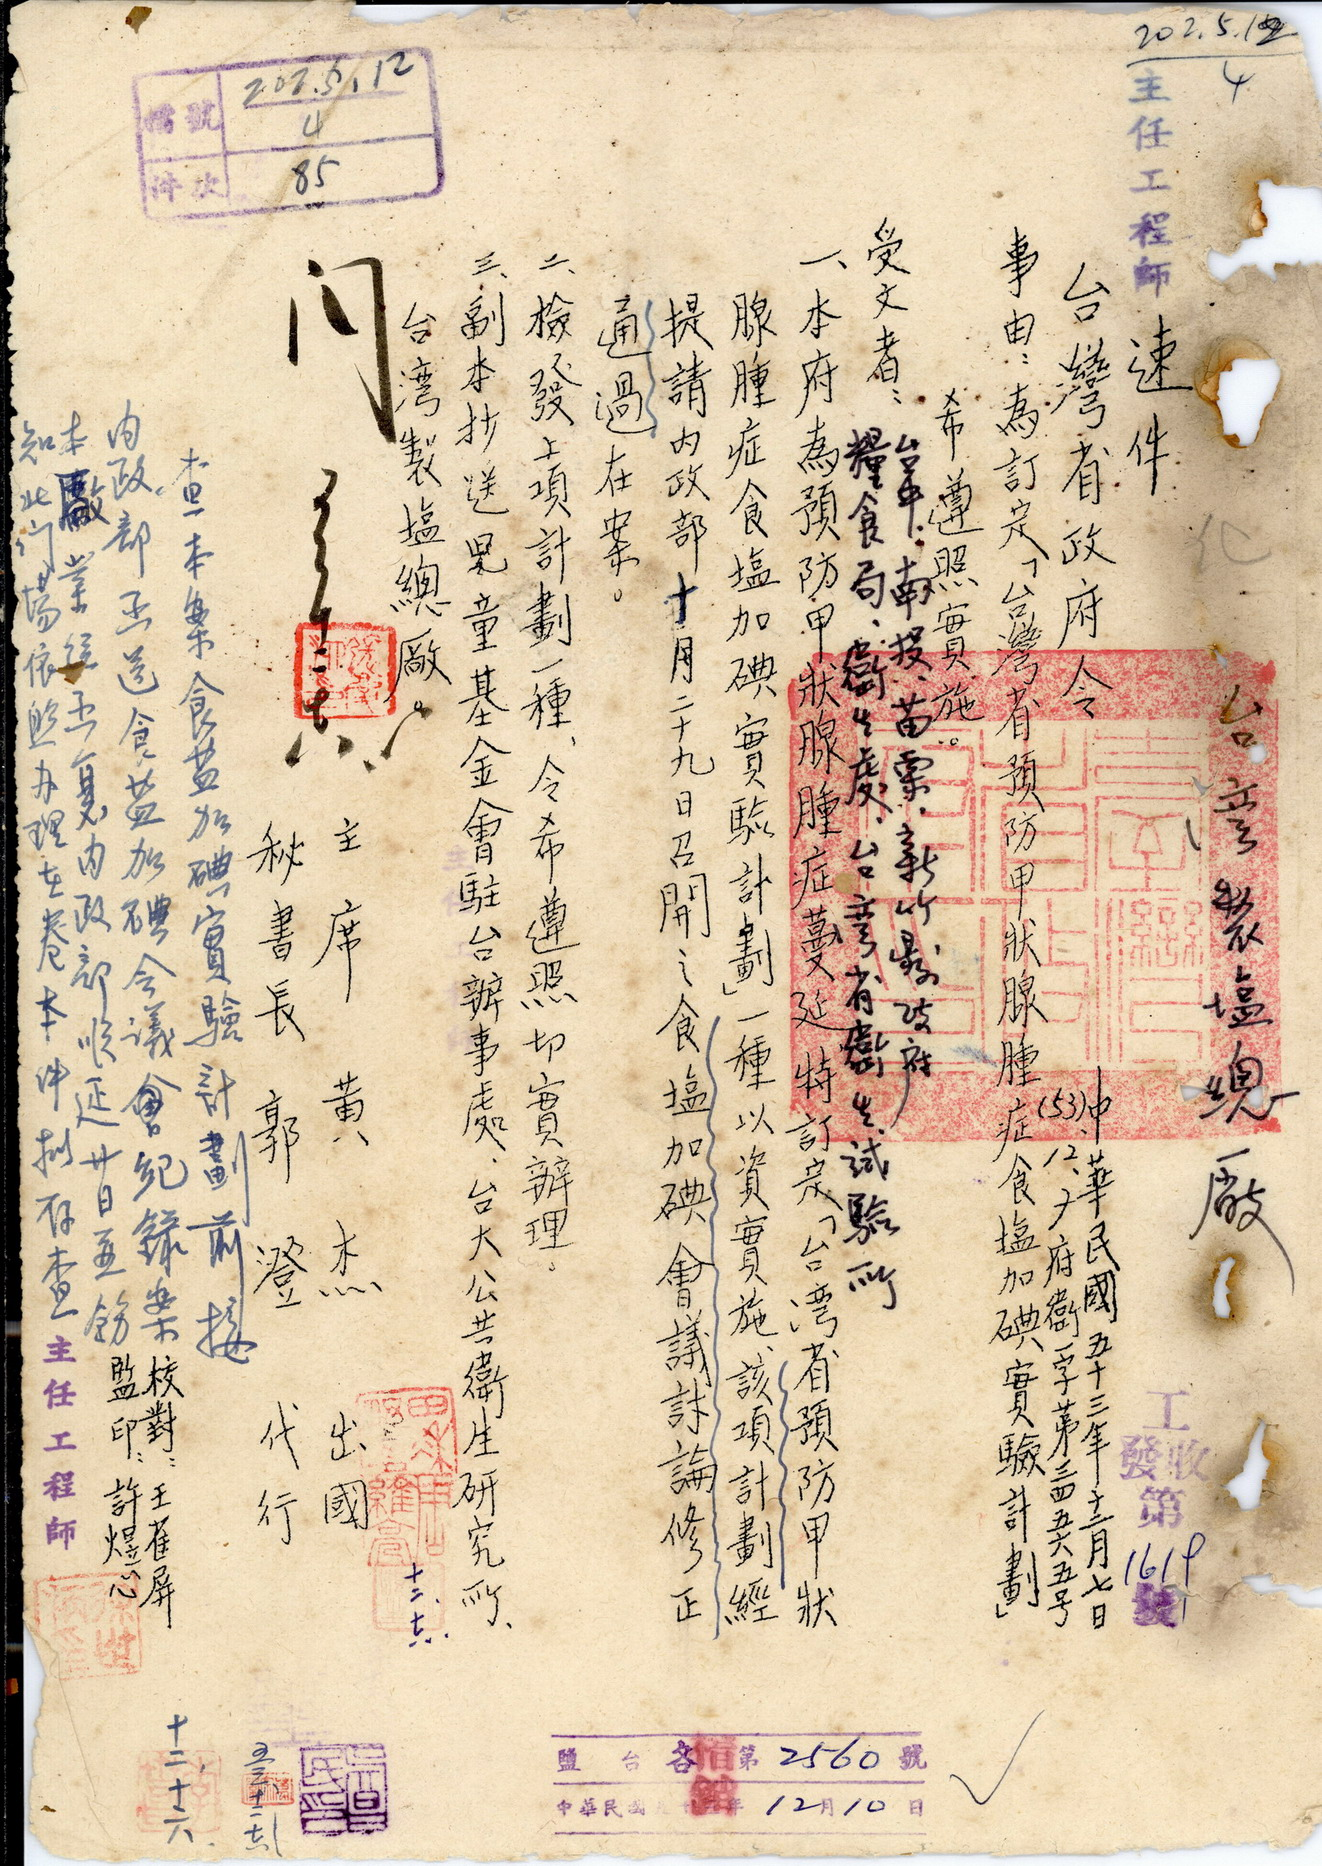 202.5.12
4
主任工程師
檔號 202.5.12
4
件次 85
台湾製塩總廠
速件
台灣省政府令
中華民國五十三年十二月七日
(53)、12、7府衛字第三四五六五号
事由：為訂定「台灣省預防甲狀腺腫症食塩加碘實驗計劃」
希遵照實施。
受文者：台中、南投、苗栗、新竹縣政府
糧食局、衛生處、台湾省衛生試驗所
一、本府為預防甲狀腺腫症蔓延特訂定「台湾省預防甲狀
腺腫症食塩加碘實驗計劃」一種以資實施、該項計劃經
提請内政部十月二十九日召開之食塩加碘會議討論修正
通過在案。
二、檢發上項計劃一種、令希遵照切實辦理。
三、副本抄送兒童基金會駐台辦事處、台大公共衛生研究所、
台湾製塩總廠。
主席 黃杰 出國
秘書長 郭澄 代行
校對：王萑屏
監印：許煜心
查本案食盐加碘實驗計劃前接
内政部函送食盐加碘会議會紀錄案
本廠業經函復内政部順延廿日並飭
知北门場依照办理在卷本件拟存查
主任工程師
十二、十六、
工收
發第
1619
號
鹽台各第2560號
中華民國五十三年12月10日